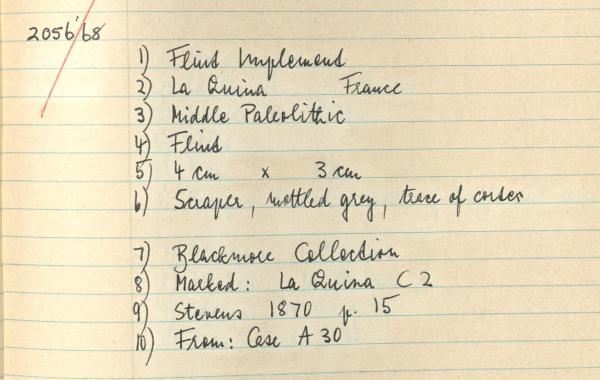 2056/68
1) Flint Implement
2) La Quina France
3) Middle Paleolithic
4) Flint
5) 4 cm x 3 cm
6) Scraper, mottled grey, trace of cortex
7) Blackmore Collection
8) Marked: La Quina C 2
9) Stevens 1870 p. 15
10) From: Case A 30